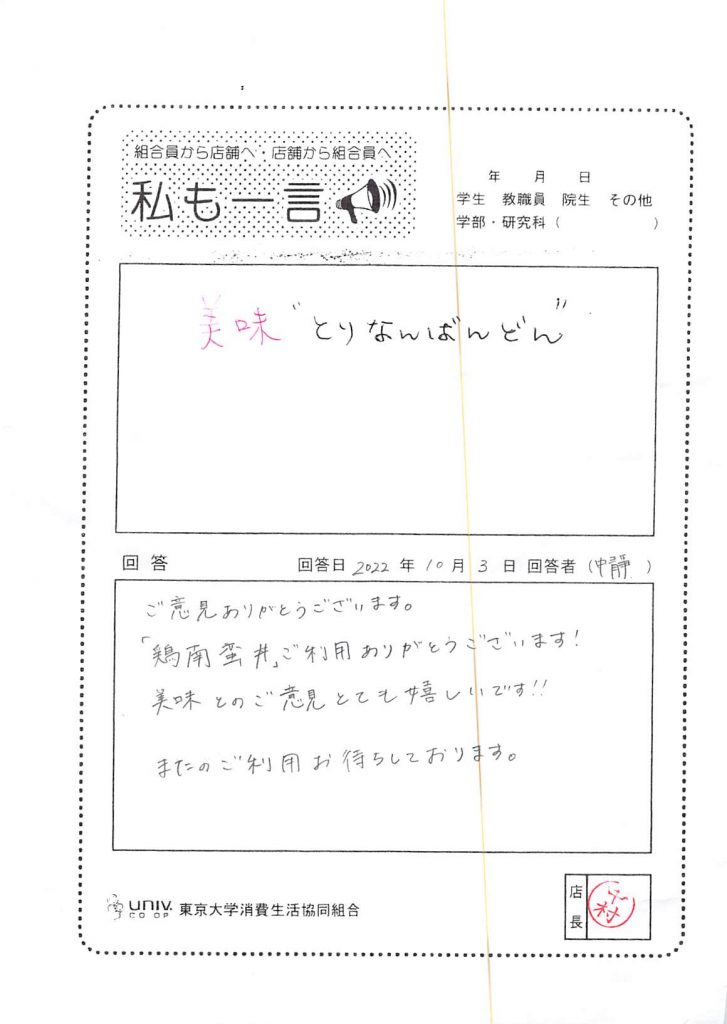 組合員から店舗へ・店舗から組合員へ
私も一言
年 月 日
学生 教職員 院生 その他
学部・研究科( )
美味〝とりなんばんどん〟
回答 回答日 2022 年 10 月 3 日 回答者 (中靜 )
ご意見ありがとうございます。
「鶏南蛮丼」ご利用ありがとうございます!
美味とのご意見とても嬉しいです!!
またのご利用お待ちしております。
UNIV. CO-OP 東京大学消費生活協同組合
店長